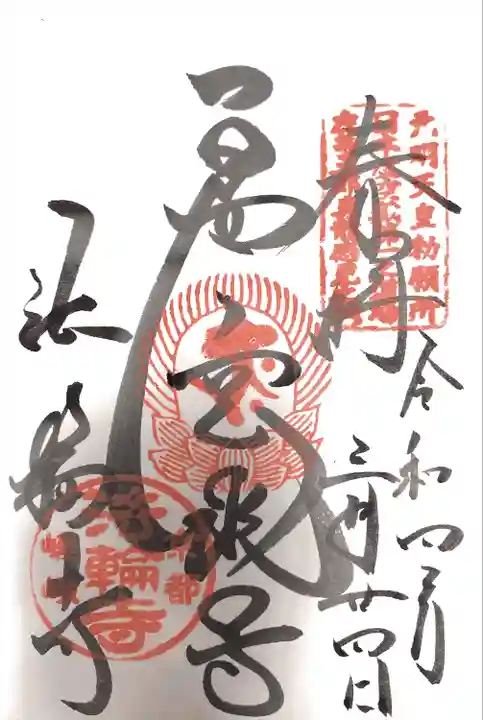 元明天皇勅願所
奉拝
令和四年
三月廿四日
虚空蔵尊
法輪寺
京都
法輪寺